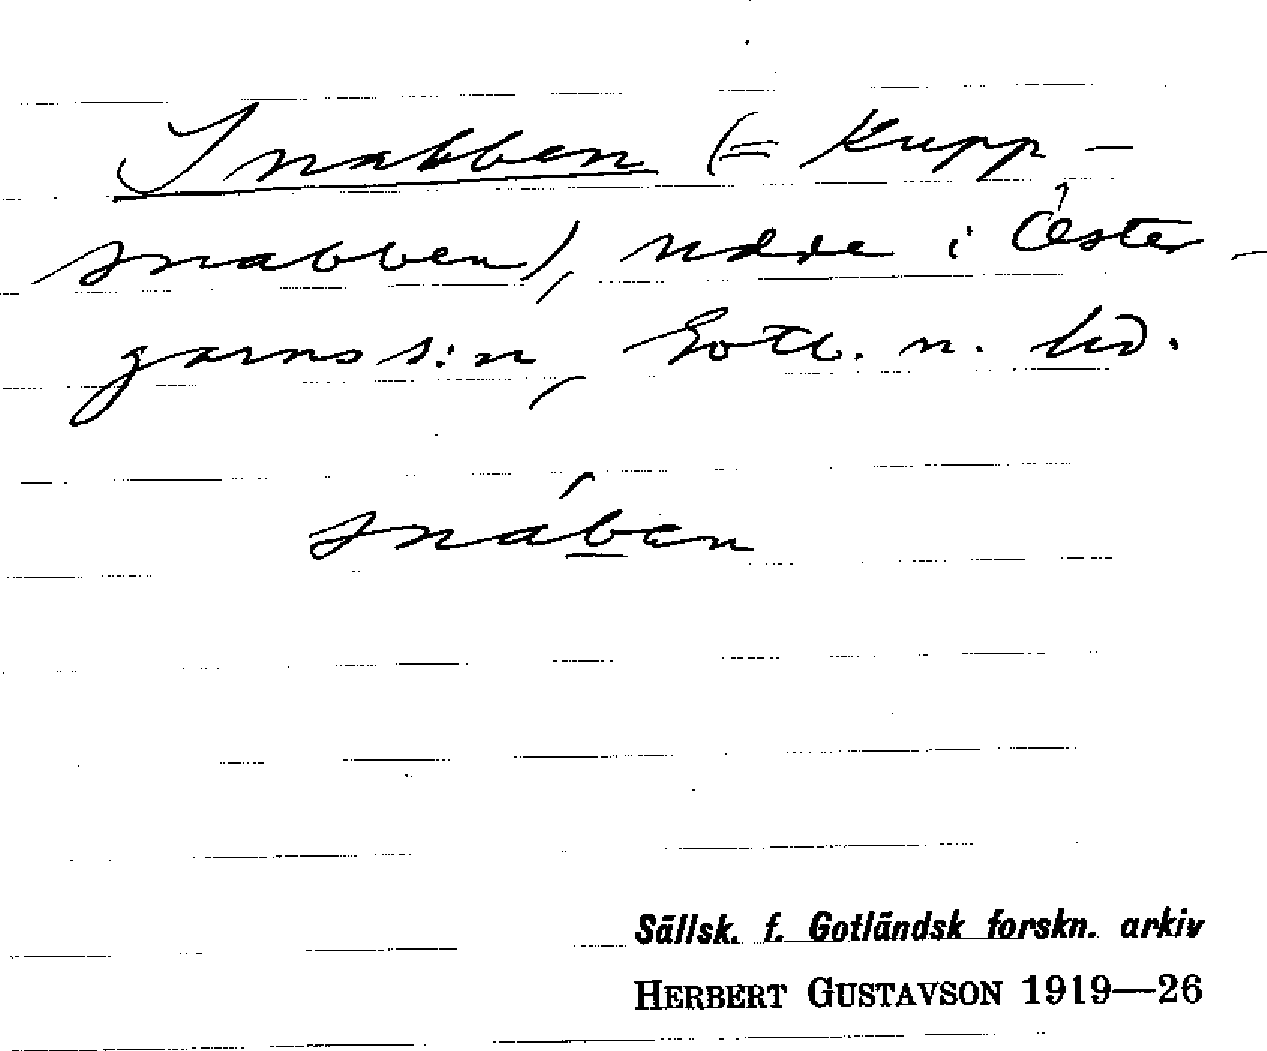 Snabben (= Kupp-
snabben), udde i Öster-
garns s:n, Gotl. n. hd.
snáben
Sällsk. f. Gotländsk forskn. arkiv
HERBERT GUSTAVSON 1919—26